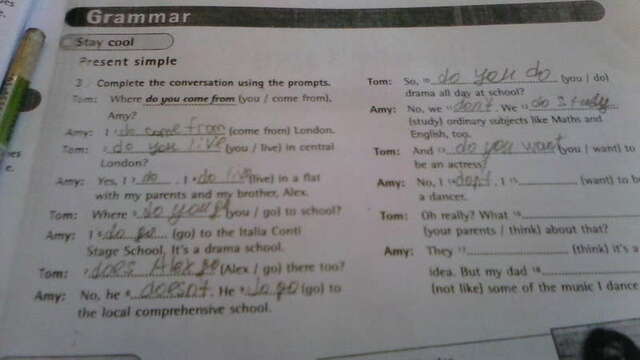 Grammar
Stay cool
Present simple
3 Complete the conversation using the prompts.
Tom: Where do you come from (you / come from),
Amy?
Amy: I 1 do come from (come from) London.
Tom: 2 do you live (you / live) in central
London?
Amy: Yes, I 3 do. I 4 do live (live) in a flat
with my parents and my brother, Alex.
Tom: Where 5 do you go (you / go) to school?
Amy: I 6 do go (go) to the Italia Conti
Stage School. It's a drama school.
Tom: 7 does Alex go (Alex / go) there too?
Amy: No, he 8 doesn't. He 9 do go (go) to
the local comprehensive school.
Tom: So, 10 do you do (you / do)
drama all day at school?
Amy: No, we 11 don't. We 12 do study
(study) ordinary subjects like Maths and
English, too.
Tom: And 13 do you want (you / want) to
be an actress?
Amy: No, I 14 don't. I 15 (want) to b
a dancer.
Tom: Oh really? What 16
(your parents / think) about that?
Amy: They 17 (think) it's a
idea. But my dad 18
(not like) some of the music I dance